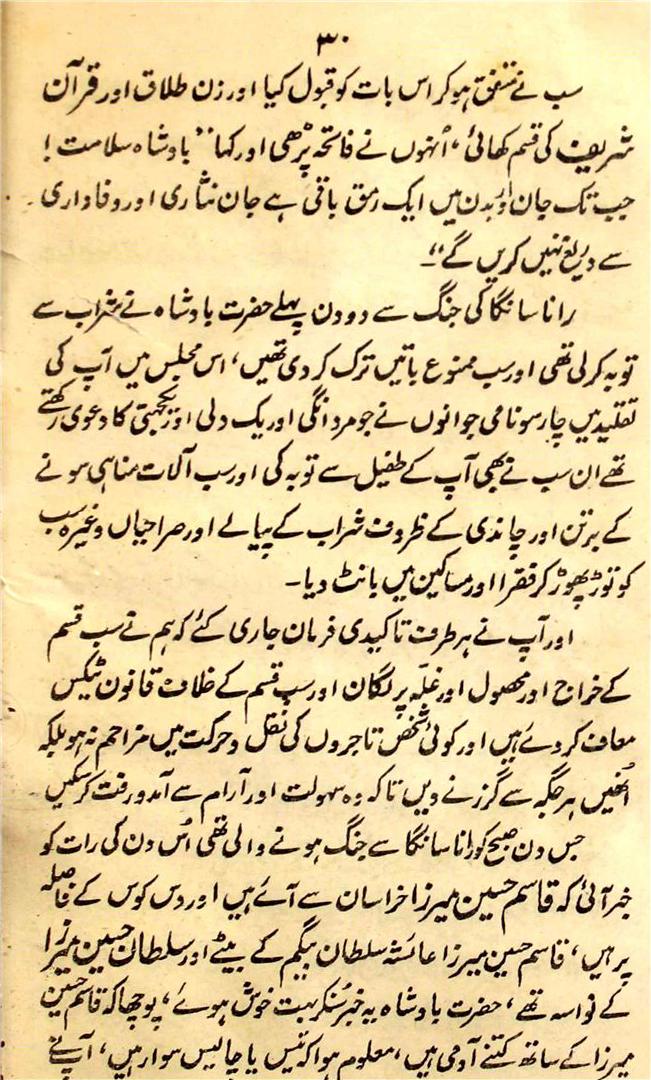 ۳۰
سب نے متفق ہو کر اس بات کو قبول کیا اور زن طلاق اور قرآن
شریف کی قسم کھائی، اُنہوں نے فاتحہ پڑھی اور کہا "بادشاہ سلامت!
جب تک جان اور بدن میں ایک رمق باقی ہے جان نثاری اور وفاداری
سے دریغ نہیں کریں گے"۔
رانا سانگا کی جنگ سے دو دن پہلے حضرت بادشاہ نے شراب سے
توبہ کر لی تھی اور سب ممنوع باتیں ترک کر دی تھیں، اس مجلس میں آپ کی
تقلید میں چار سو نامی جوانوں نے جو مردانگی اور یک دلی اور یکجہتی کا دعویٰ رکھتے
تھے ان سب نے بھی آپ کے طفیل سے توبہ کی اور سب آلات مناہی سونے
کے برتن اور چاندی کے ظروف شراب کے پیالے اور صراحیاں وغیرہ سب
کو توڑ پھوڑ کر فقرا اور مساکین میں بانٹ دیا۔
اور آپ نے ہر طرف تاکیدی فرمان جاری کئے کہ ہم نے سب قسم
کے خراج اور محصول اور غلّہ پر لگان اور سب قسم کے خلاف قانون ٹیکس
معاف کر دئے ہیں اور کوئی شخص تاجروں کی نقل و حرکت میں مزاحم نہ ہو بلکہ
اُنھیں ہر جگہ سے گزرنے دیں تاکہ وہ سہولت اور آرام سے آمد و رفت کر سکیں
جس دن صبح کو رانا سانگا سے جنگ ہونے والی تھی اُس دن کی رات کو
خبر آئی کہ قاسم حسین میرزا خراسان سے آئے ہیں اور دس کوس کے فاصلہ
پر ہیں، قاسم حسین میرزا عائشہ سلطان بیگم کے بیٹے اور سلطان حسین میرزا
کے نواسہ تھے، حضرت بادشاہ یہ خبر سُنکر بہت خوش ہوئے، پوچھا کہ قاسم حسین
میرزا کے ساتھ کتنے آدمی ہیں، معلوم ہوا کہ تیس یا چالیس سوار ہیں، آپ نے